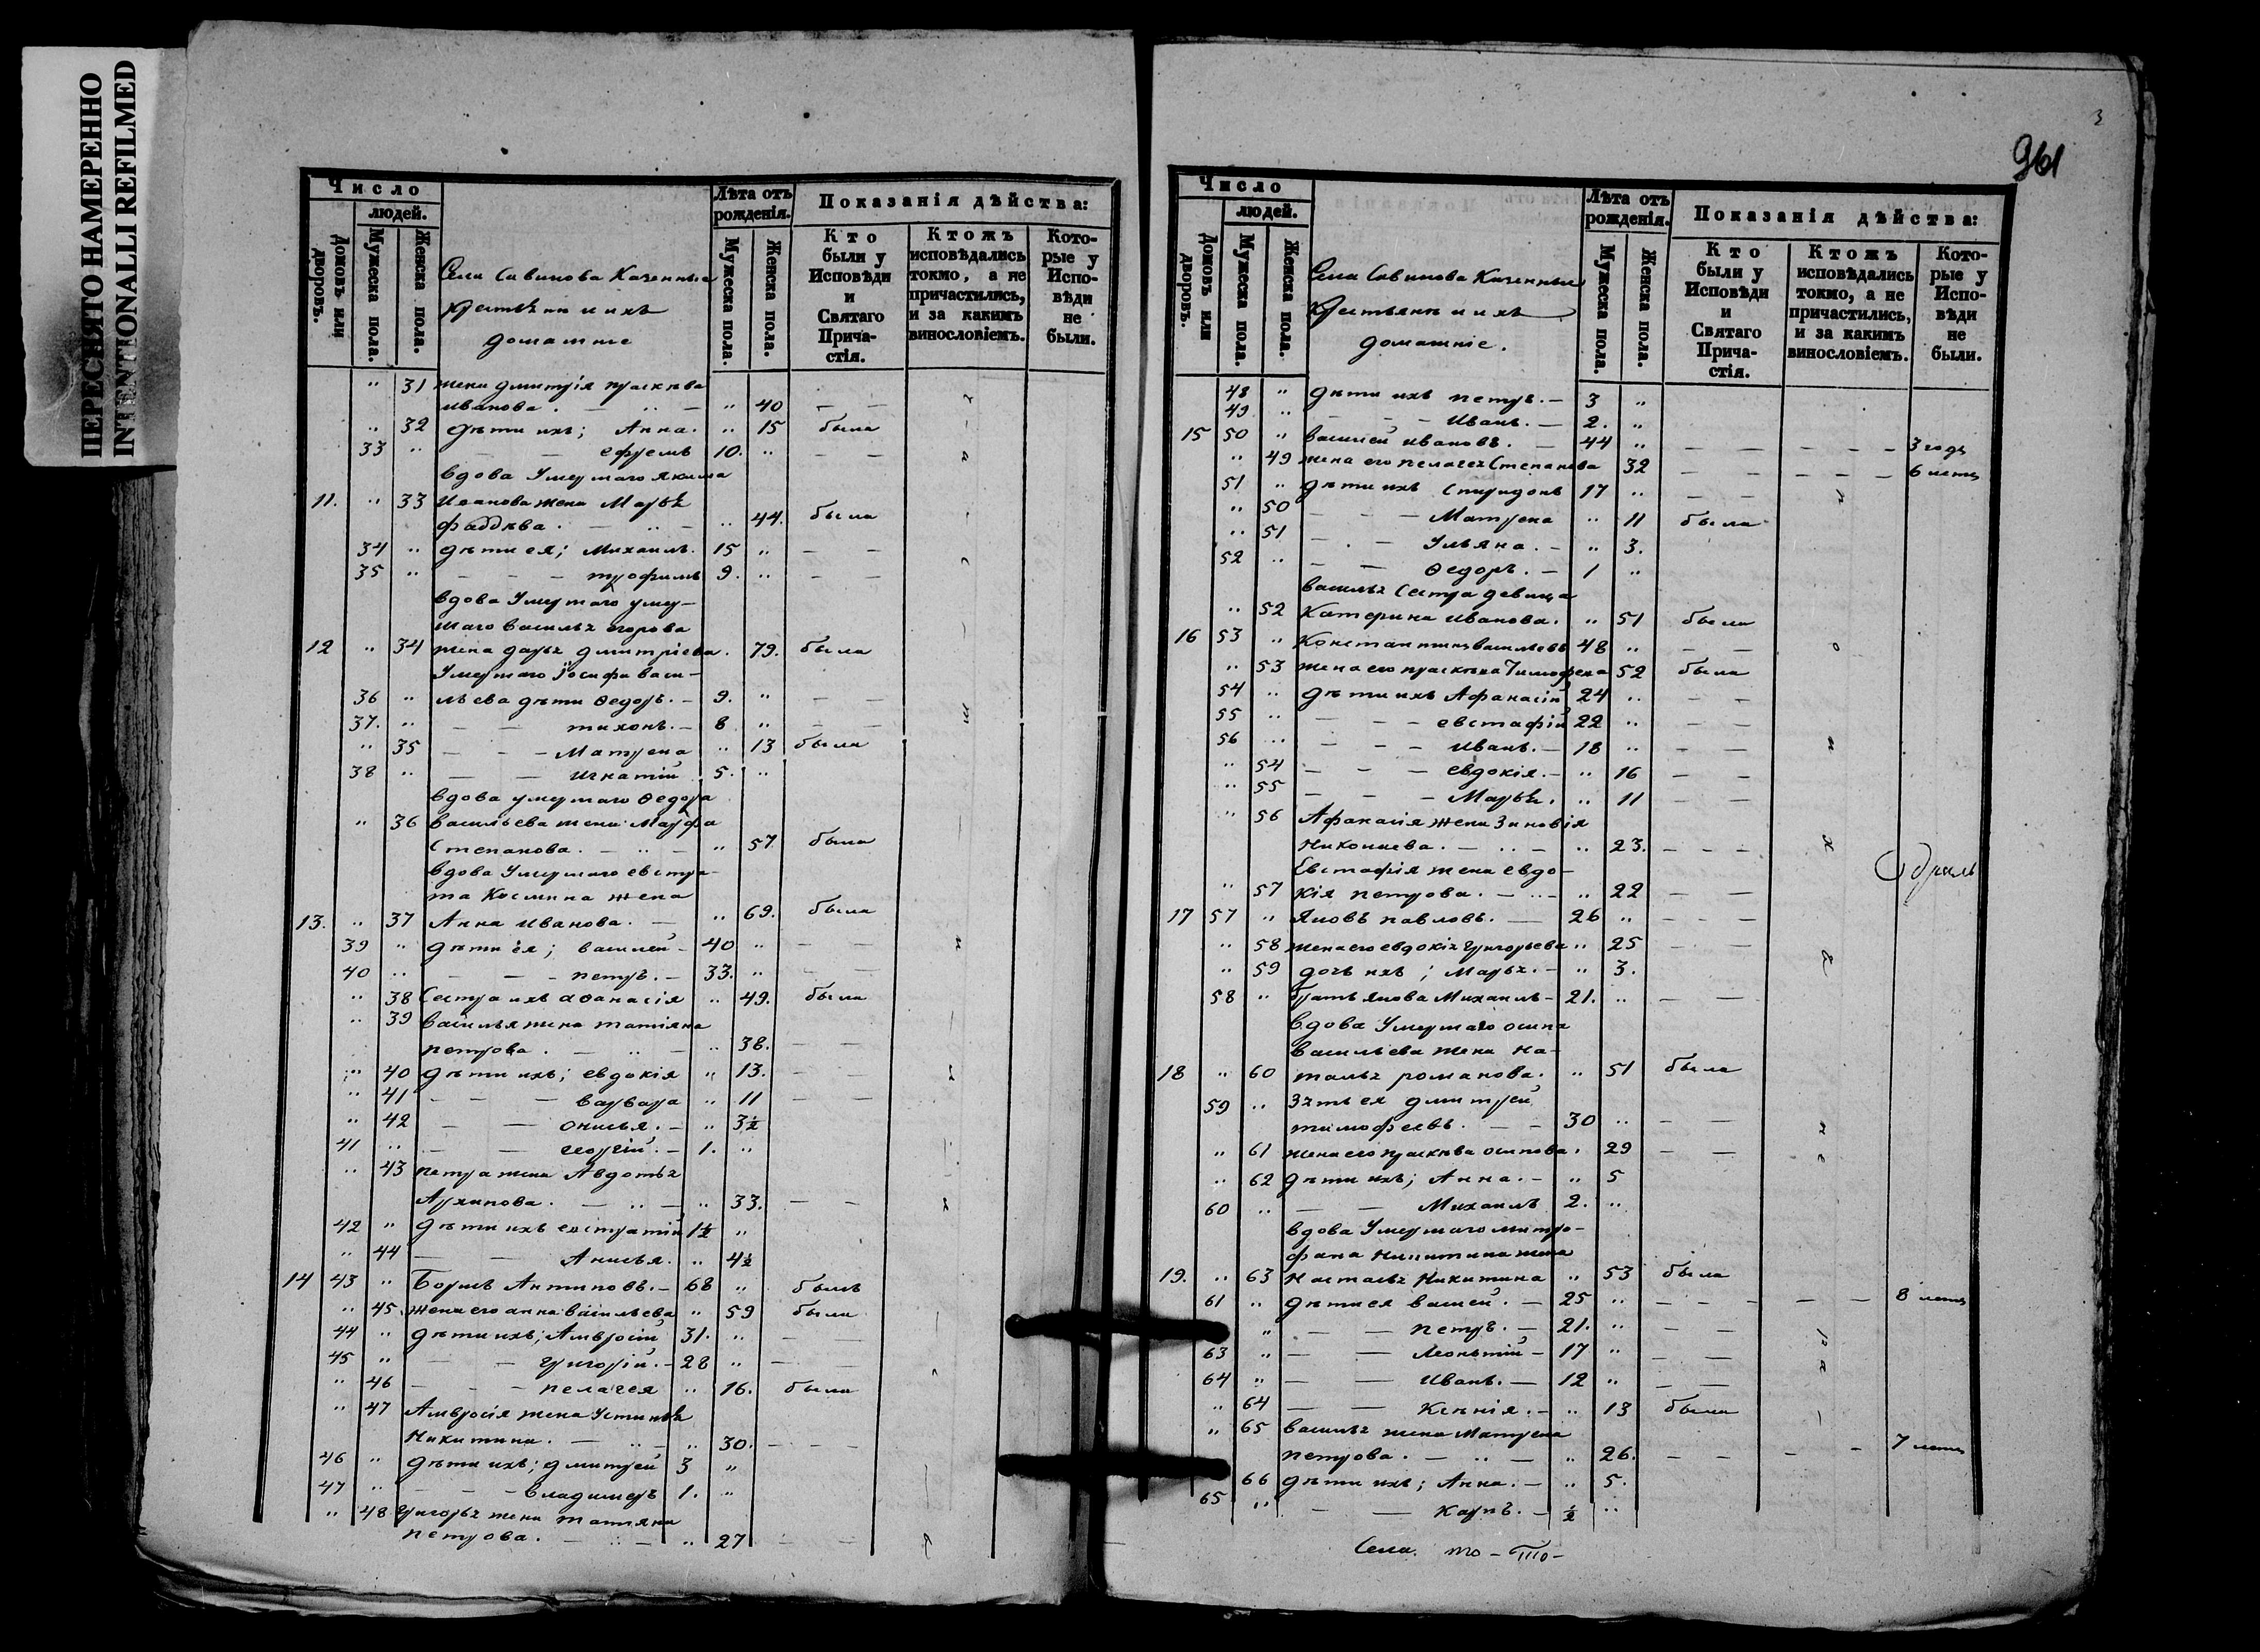 ПЕРЕСНЯТО НАМЕРЕННО
INTENTIONALLI REFILMED
Число
людей.
Домовъ или дворовъ.
Мужеска пола.
Женска пола.
Села Савинова Казенные
крестьяне и ихъ
домашние
Лѣта отъ рожденія.
Мужеска пола.
Женска пола.
Показанія дѣйства:
Кто были у Исповѣди и Святаго Прича-стія.
Ктожъ исповѣдались токмо, а не причастились, и за какимъ винословіемъ.
Кото-рые у Испо-вѣди не были.
" 31 жена дмитрія праскева
иванова. — " — " 40 — —
" 32 дѣти ихъ; Анна. " 15 была
33 " — — ефремъ 10. " — —
вдова Умершаго Якима
11. " 33 Иванова жена Марья
фаддѣва. — " — " 44. была
34 " дѣти ея; Михаилъ. 15 " — —
35 " — — — трофимъ 9. " — —
вдова Умершаго умер-
шаго василья егорова
12 " 34 жена дарья дмитріева. 79. была
Умершаго Іосифа васи-
36 " льева дѣти Ѳедоръ. — 9. " — —
37. " — — тихонъ. — 8 " — —
" 35 — — — Матрена " 13 была
38 " — — игнатій 5. "
вдова умершаго Ѳедора
" 36 васильева жена Марфа
Степанова. — " — " 57. была
вдова Умершаго евстра-
та Космина жена
13. " 37 Анна Иванова. — " 69. была
39 " дѣти ея; василей — 40 " — —
40 " — — — петръ. — 33. " — —
" 38 Сестра ихъ аѳанасія " 49. была
" 39 василья жена татіяна
петрова. — " — " 38. — —
" 40 дѣти ихъ; евдокія " 13. — —
" 41 — — — варвара " 11 — —
" 42 — — онисья. — " 3½
41 " — — георгій. — 1. "
" 43 петра жена Авдотья
Архипова. — " — " 33. — —
42 " дѣти ихъ евстратій 1½ "
" 44 — — Анисья. " 4½
14 43 " Борисъ Антиповъ. — 68 " былъ
" 45 жена его анна васильева " 59 была
44 " дѣти ихъ; Амвросій 31. " — —
45 " — — григорій. — 28 " — —
" 46 — — — пелагея " 16. была
" 47 Амвросія жена Устинья
Никитина. — " — " 30. — — —
46 " дѣти ихъ; дмитрей 3 "
47 " — — — владимеръ 1. "
" 48 григорья жена татіяна
петрова. — " — " 27 — —
3
961
Число
людей.
Домовъ или дворовъ.
Мужеска пола.
Женска пола.
Села Савинова Казенные
крестьяне и ихъ
домашніе.
Лѣта отъ рожденія.
Мужеска пола.
Женска пола.
Показанія дѣйства:
Кто были у Исповѣди и Святаго Прича-стія.
Ктожъ исповѣдались токмо, а не причастились, и за какимъ винословіемъ.
Кото-рые у Испо-вѣди не были.
48 " дѣти ихъ петръ. — 3 "
49 " — — Иванъ. — 2. "
15 50 " василей ивановъ. — 44 " — — — — — 3 года
" 49 жена его пелагея Степанова 32 — — — — — 6 летъ
51 " дѣти ихъ Спиридонъ 17 " — —
" 50 — — — Матрена " 11 была
" 51 — — — Ульяна. — " 3.
52 " — — Ѳедоръ. — 1 "
василья Сестра девица
" 52 Катерина иванова. " 51 была
16 53 " Константинъ васильевъ 48 " — —
" 53 жена его праскева Тимофеева 52 была
54 " дѣти ихъ Афанасій 24 " — —
55 " — — — евстафій 22 " — —
56 " — — — иванъ. — 18 " — —
" 54 — — — евдокія. — " 16 — —
" 55 — — — Марья. " 11 — —
" 56 Афанасія жена Зиновія
Николаева. — " — " 23. — — —
Евстафія жена евдо-
" 57 кія петрова. — " — " 22 — —
17 57 " Яковъ павловъ. — 26 " — — —
" 58 жена его евдокія григорьева " 25 — —
" 59 дочь ихъ; Марья. — " 3.
58 " братъ якова Михаилъ — 21. " — —
вдова Умершаго осипа
васильева жена На-
18 " 60 талья романова. " 51 была
59 " Зять ея дмитрей
тимофеевъ. — — 30 " — —
" 61 жена его праскева осипова. 29 — —
" 62 дѣти ихъ; Анна. — " 5
60 " — — Михаилъ 2. "
вдова Умершаго митро-
фана Никитина жена
19. " 63 Насталья Никитина " 53 была
61 " дѣти ея васлей. — 25 " — — — — — 8 летъ
" — — петръ. — 21. " — —
63 " — — Леонътій — 17 " — —
64 " — — Иванъ. — 12 " — —
" 64 — — Ксѣнія. — " 13 была
" 65 василья жена Матрена
петрова. — " — " 26. — — — — 7 летъ
66 дѣти ихъ; Анна. — " 5.
65 " — — карпъ. — ½ "
Села